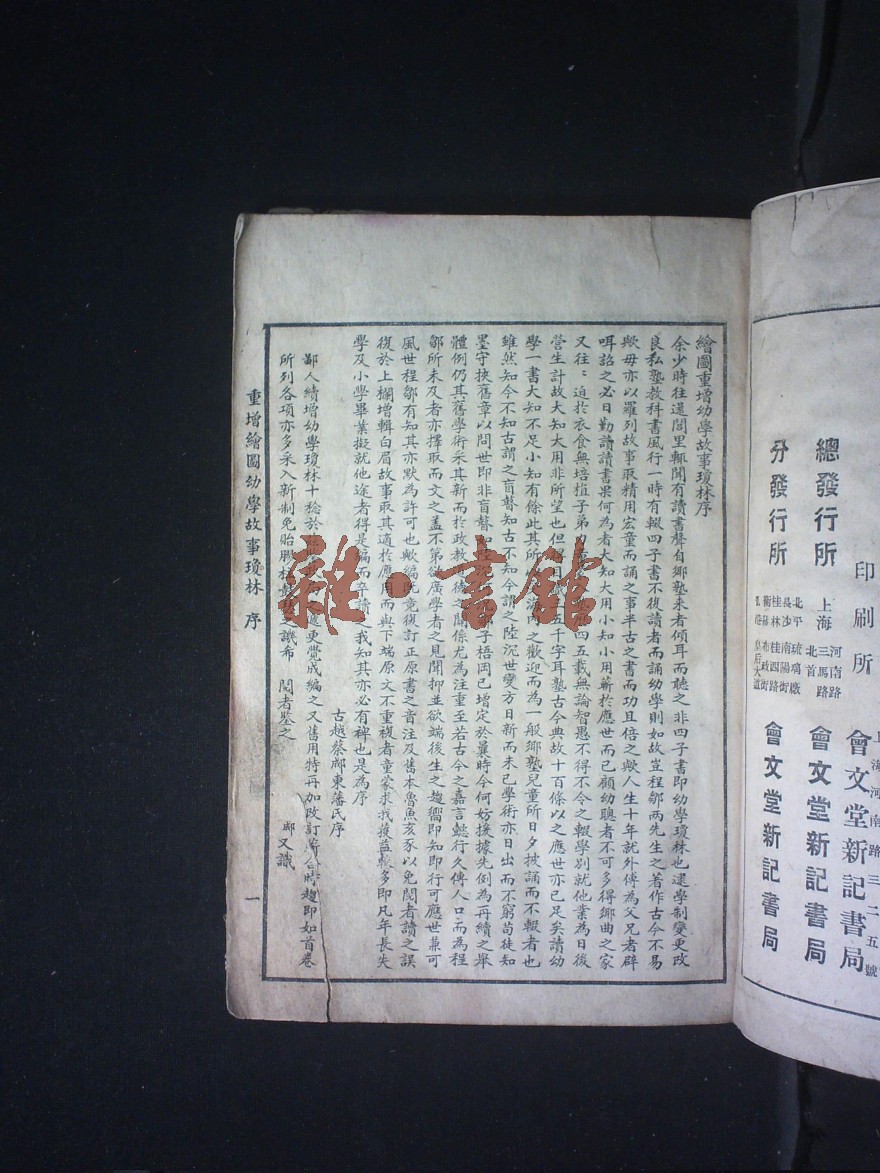 繪圖重增幼學故事瓊林序
余少時往還閭里輒聞有讀書聲自鄉塾來者傾耳而聽之非四子書即幼學瓊林也逮學制變更改
良私塾教科書風行一時有輟四子書不復讀者而誦幼學則如故豈程鄒兩先生之著作古今不易
歟毋亦以羅列故事取精用宏童而誦之事半古之書而功且倍之歟人生十年就外傅為父兄者辟
咡詔之必曰勤讀讀書果何為者大知大用小知小用蘄於應世而已顧幼聰者不可多得鄉曲之家
又往往迫於衣食無培植子弟 四五載無論智愚不得不令之輟學別就他業為日後
營生計故大知大用非所望也但 五千字耳塾古今典故十百條以之應世亦已足矣請幼
學一書大知不足小知有餘此其所 海內之歡迎而為一般鄉塾兒童所日夕披誦而不輟者也
雖然知今不知古謂之盲瞽知古不知今謂之陸沉世變方日新而未已學術亦日出而不窮苟徒知
墨守挾舊章以問世即非盲瞽 子梧岡已增定於曩時今何妨援據先例為再續之舉
體例仍其舊學術采其新而於政教道德之關係尤為注重至若古今之嘉言懿行久傳人口而為程
鄒所未及者亦擇取而文之蓋不第欲廣學者之見聞抑並欲端後生之趨嚮即知即行可應世兼可
風世程鄒有知其亦默為許可也歟編既竟復訂正原書之音注及舊本魯魚亥豕以免閱者讀之誤
復於上欄增輯白眉故事取其適於應用而與下端原文不重複者童蒙求我獲益較多即凡年長失
學及小學畢業擬就他途者得是編而卒讀之我知其亦必有裨也是為序
古越蔡郕東藩氏序
鄙人續增幼學瓊林十稔於 更覺成編之又舊用特再加改訂 合時趨即如首卷
所列各項亦多采入新制免貽 譏希 閱者鑒之
郕又識
重增繪圖幼學故事瓊林 序
一
雜·書館
印刷所
上海河南路三二五號
會文堂新記書局
總發行所
上海
河南路
三馬路
北首
會文堂新記書局
分發行所
北平 琉璃廠
長沙 南陽街
桂林 桂西路
衡陽
布政街
皇后大道
會文堂新記書局